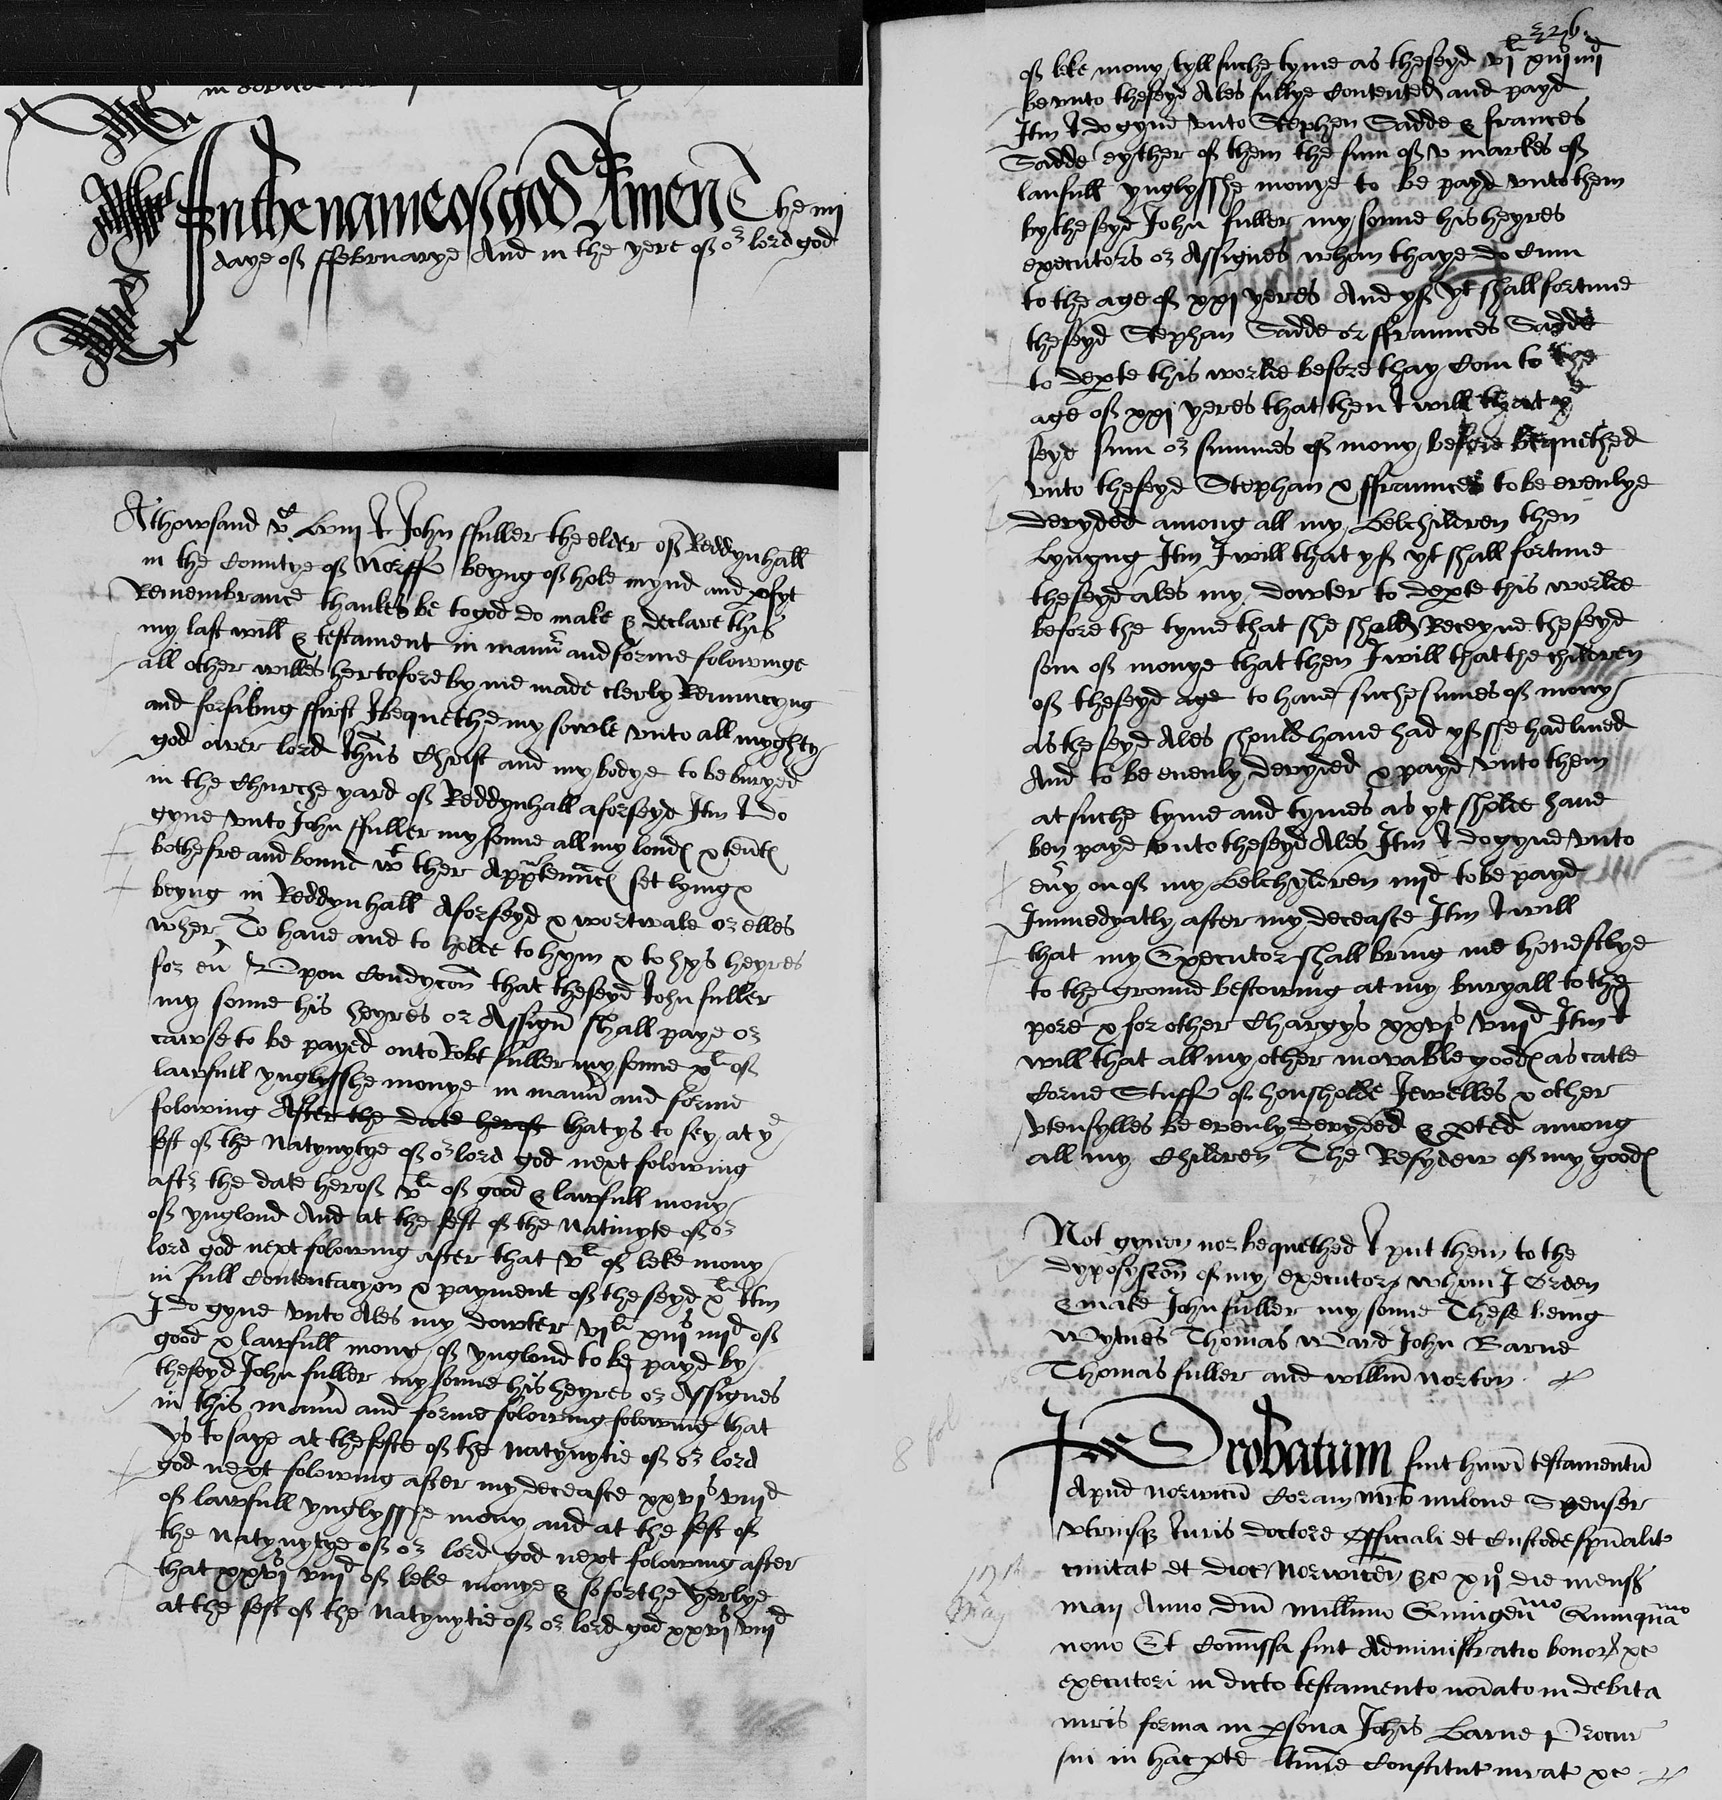 In the name of god Amen The iiij
daye of ffebruarye And in the yere of or lord god
A thowsand vC lviij I John ffuller the elder of Reddynhall
in the Countye of Norff beyng of hole mynd and pfyt
Remembrance thankes be to god do make & declare this
my last will & testament in mannr and forme folowinge
all other willes hertofore by me made clerly Renuncyng
and forsaking ffirst I bequethe my sowle unto all myghty
god ower lord Ihus Christ and my bodye to be buryed
in the Churche yard of Reddynhall aforseyd Itm I do
gyve unto John ffuller my sonne all my lond & tent
bothe fre and bound wt ther Apprtennc set lying &
beyng in Reddynhall Aforseyd & wortwale or elles
wher To have and to holde to hym & to hys heyres
for evr Upon Condycon that the seyd John fuller
my sonne his heyres or Assign shall paye or
cawse to be payed onto Robt fuller my sonne xl of
lawfull ynglysshe monye in mannr and forme
folowing After the date herof that ys to sey at ye
fest of the Natyvytye of or lord god next folowing
aftr the date herof vl of good & lawfull mony
of ynglond And at the fest of the Nativyte of or
lord god next folowing after that vl of leke mony
in full Contentacyon & payment of the seyd xl Itm
I do gyve unto Ales my dowter vjl xiijs iiijd of
good & lawfull mony of ynglond to be payd by
the seyd John fuller my sonne his heyres or Assignes
in this mannr and forme folowing folowing that
ys to saye at the feste of the Natyvytie of or lord
god next folowing after my deceasse xxvjs viijd
of lawfull ynglysshe mony and at the fest of
the Natyvytye of or lord god next folowing after
that xxvjs viijd of leke monye & so forthe yerlye
at the fest of the Natyvytie of or lord god xxvjs viijd
326
of leke mony tyll suche tyme as the seyd vjl xiijs iiijd
be unto the seyd Ales fullye Contented and payd
Itm I do gyve unto Stephen Sadde & frances
Sadde eyther of them the sum of v markes of
laufull ynglysshe monye to be payd unto them
by the seyd John fuller my sonne his heyres
executors or Assignes whan thaye do Cum
to the age of xxj yeres And yf yt shall fortune
the seyd Stephan Sadde or ffraunces Sadde
to depte this worlde before thay Com to the
age of xxj yeres that then I will that ye
seyd sum or summes of mony before bequethed
unto the seyd Stephan & ffraunces to be evenlye
devyded among all my Belchildren then
lyvyng Itm I will that yf yt shall fortune
the seyd ales my dowter to depte this worlde
before the tyme that she shall Receyve the seyd
som of monye that then I will that the children
of the seyd age to have suche sumes of mony
as the seyd Ales should have had yf sse had lived
And to be evenly devyded & payd unto them
at suche tyme and tymes as yt sholde have
ben payd unto the seyd Ales Itm I do gyve unto
evy on of my Belchyldren iiijd to be payd
Immedyatly after my deceasse Itm I will
that my Executor shall bring me honestlye
to the ground bestowing at my buryall to the
pore & for other Chargys xxvjs viijd Itm I
will that all my other movable good as catle
Corne Stuff of housholde Jewelles & other
utensylles be evenly devyded & pted among
all my Children The Resydew of my good
Not gyven nor bequethed I put them to the
dyposyscon of my executor whom I Orden
& make John fuller my sonne These being
Wytnes Thomas Ward John Barne
Thomas fuller and willm norton
Probatum fuit humoi testamentu
Apud norwicu Coram mro milone Spenser
utriusq Juris doctore Officiali et Custode spualit
civitat et dioc Norwicen &c xijo die mens
12th May
maij Anno dni millimo Quingenmo Quinquamo
nono Et Comissa fuit Administratio bonor &c
executori in dicto testamento noiato in debita
iuris forma in psona Johis Barne Procur
sui in hac pte ltime Constitut iurat &c